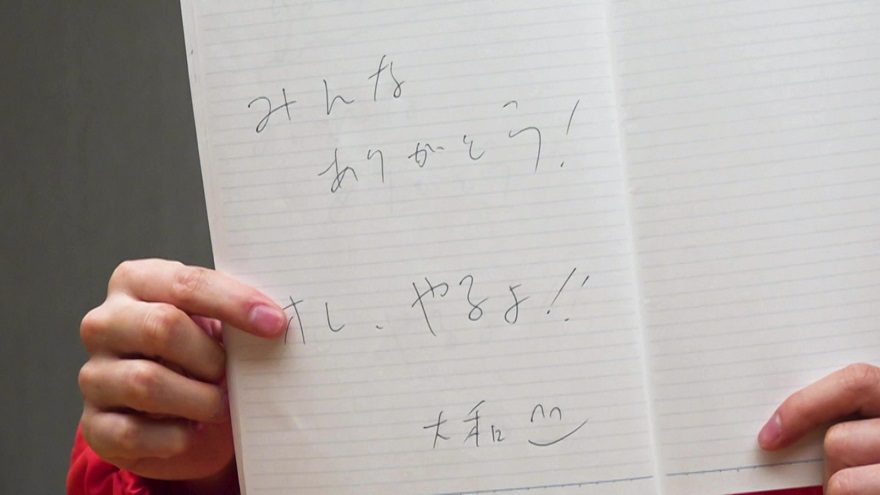 みんな
ありがとう!
オレ、やるよ!!
大和